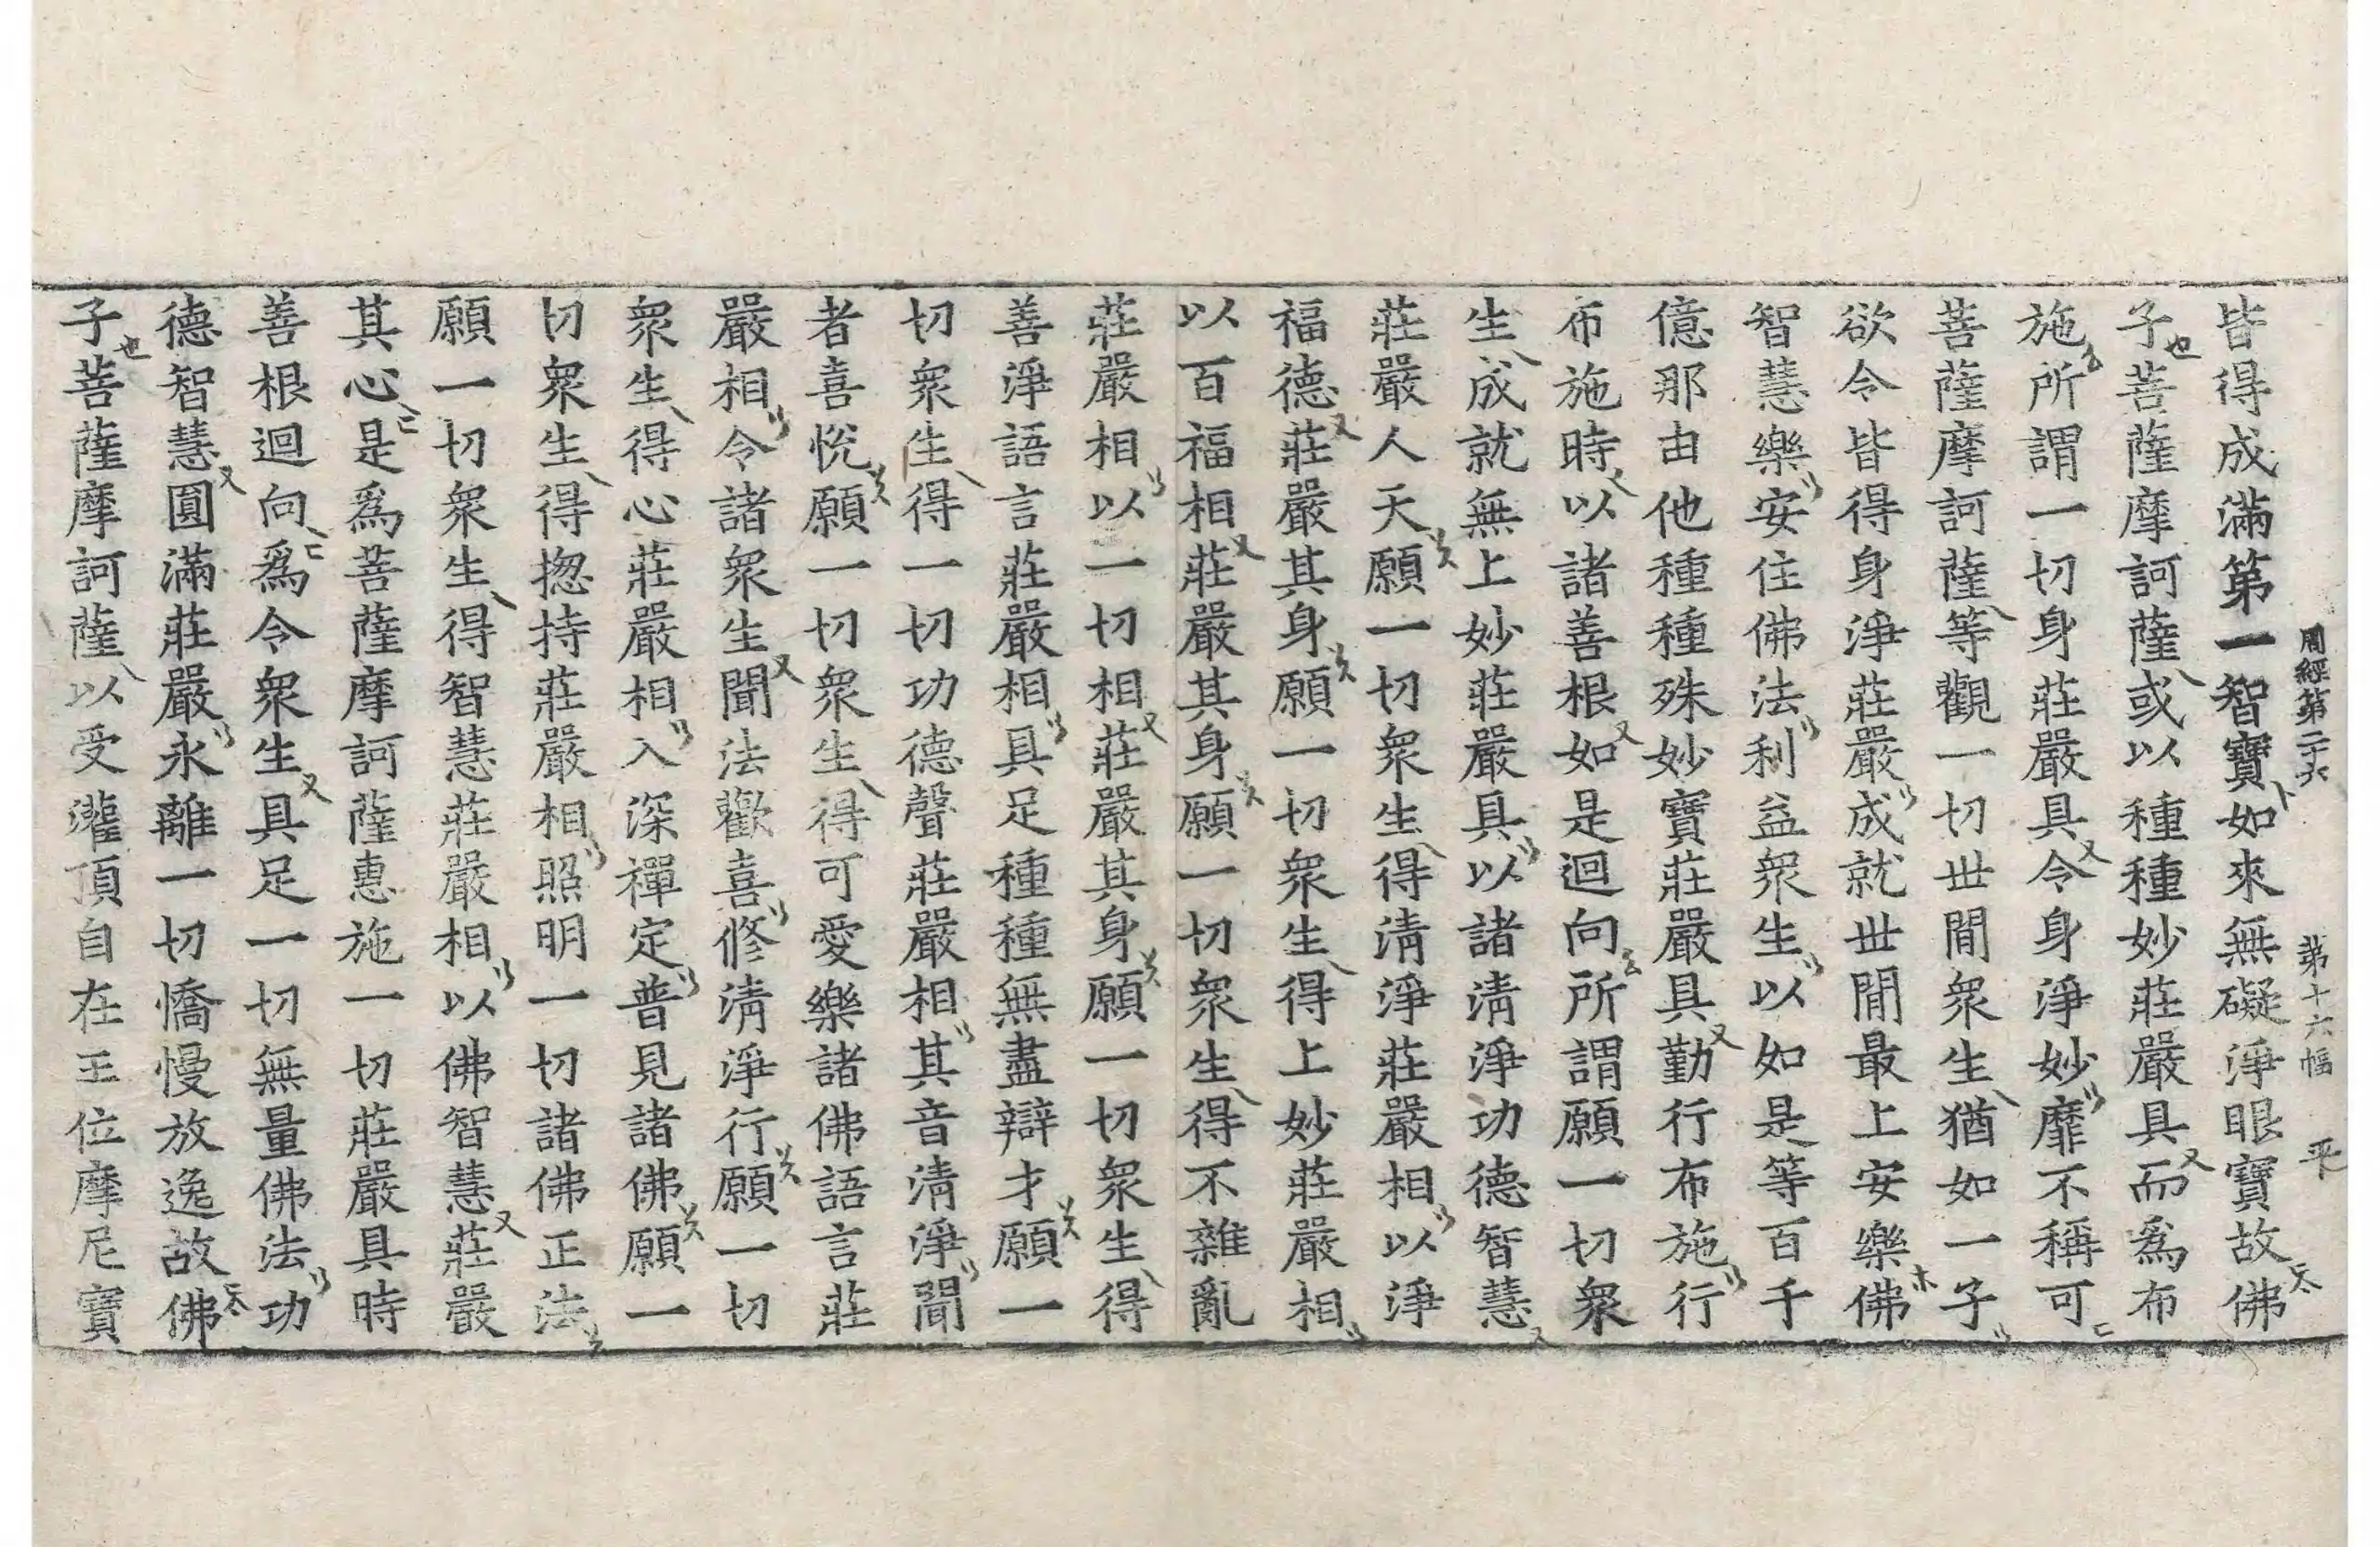 周經第二十六　第十六幅　平
皆得成滿第一智寶如來無礙淨眼寶故佛
子菩薩摩訶薩或以種種妙莊嚴具而爲布
施所謂一切身莊嚴具令身淨妙靡不稱可
菩薩摩訶薩等觀一切世間衆生猶如一子
欲令皆得身淨莊嚴成就世間最上安樂佛
智慧樂安住佛法利益衆生以如是等百千
億那由他種種殊妙寶莊嚴具勤行布施行
布施時以諸善根如是迴向所謂願一切衆
生成就無上妙莊嚴具以諸淸淨功德智慧
莊嚴人天願一切衆生得淸淨莊嚴相以淨
福德莊嚴其身願一切衆生得上妙莊嚴相
以百福相莊嚴其身願一切衆生得不雜亂
莊嚴相以一切相莊嚴其身願一切衆生得
善淨語言莊嚴相具足種種無盡辯才願一
切衆生得一切功德聲莊嚴相其音淸淨聞
者喜悅願一切衆生得可愛樂諸佛語言莊
嚴相令諸衆生聞法歡喜修淸淨行願一切
衆生得心莊嚴相入深禪定普見諸佛願一
切衆生得揔持莊嚴相照明一切諸佛正法
願一切衆生得智慧莊嚴相以佛智慧莊嚴
其心是爲菩薩摩訶薩惠施一切莊嚴具時
善根迴向爲令衆生具足一切無量佛法功
德智慧圓滿莊嚴永離一切憍慢放逸故佛
子菩薩摩訶薩以受灌頂自在王位摩尼寶